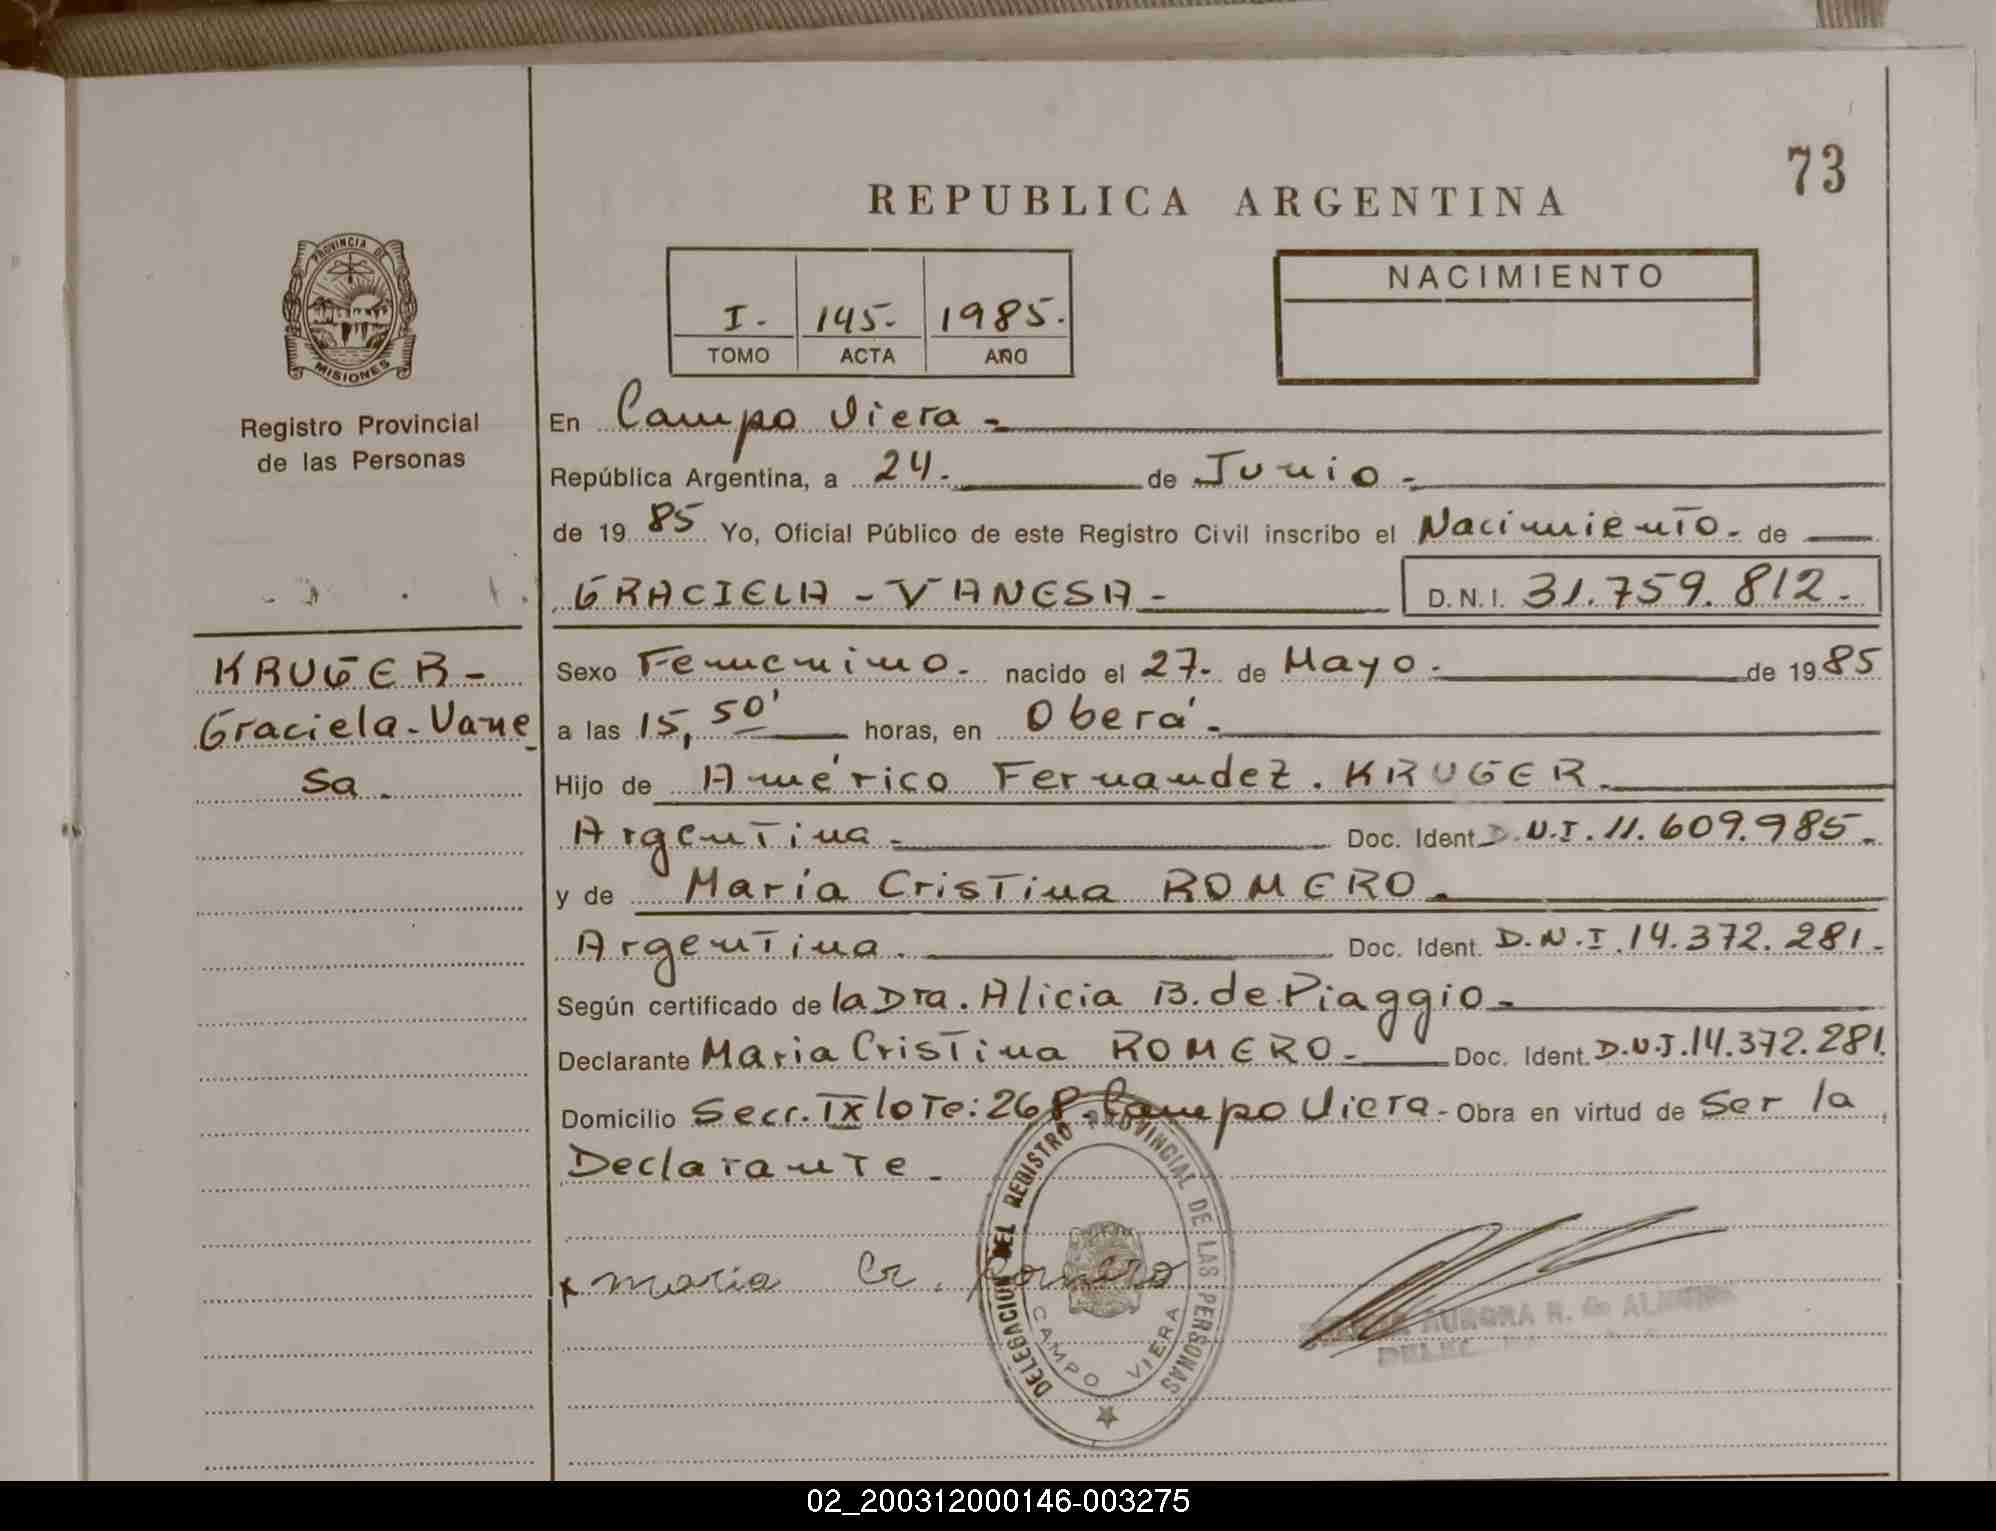 73
REPUBLICA ARGENTINA
PROVINCIA DE
MISIONES
Registro Provincial
de las Personas
I.- 145.- 1985.-
TOMO ACTA AÑO
NACIMIENTO
En Campo Viera -
República Argentina, a 24.- de Junio -
de 1985 Yo, Oficial Público de este Registro Civil inscribo el Nacimiento - de
GRACIELA - VANESA - D.N.I. 31.759.812.-
KRUGER -
Graciela - Vane_
sa.
Sexo Femenino.- nacido el 27.- de Mayo.- de 1985
a las 15,50' horas, en Oberá -
Hijo de Américo Fernandez. KRUGER.
Argentina.- Doc. Ident. D.N.I. 11.609.985.-
y de María Cristina ROMERO.
Argentina. Doc. Ident. D.N.I. 14.372.281.-
Según certificado de la Dra. Alicia B. de Piaggio -
Declarante Maria Cristina ROMERO - Doc. Ident. D.N.I. 14.372.281.
Domicilio Secc. IX lote: 268. Campo Viera - Obra en virtud de Ser la
Declarante -
x maria Cr. Romero
DELEGACION DEL REGISTRO PROVINCIAL DE LAS PERSONAS
CAMPO VIERA
AURORA N. de
02_200312000146-003275